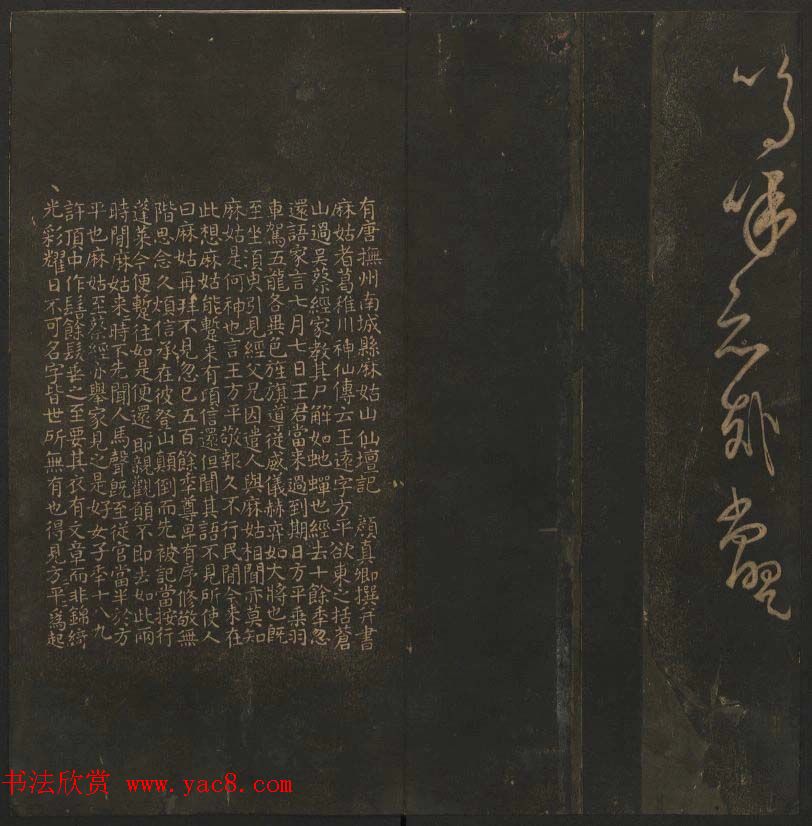 有唐撫州南城縣麻姑山仙壇記 顏真卿撰并書
麻姑者葛稚川神仙傳云王遠字方平欲東之括蒼
山過吳蔡經家教其尸解如虵蟬也經去十餘年忽
還語家言七月七日王君當來過到期日方平乘羽
車駕五龍各異色旌旗導從威儀赫弈如大將也既
至坐須臾引見經父兄因遣人與麻姑相聞亦莫知
麻姑是何神也言王方平敬報久不行民間今來在
此想麻姑能蹔來有頃信還但聞其語不見所使人
曰麻姑再拜不見忽已五百餘年尊卑有序修敬無
階思念久煩信承在彼登山顛倒而先被記當按行
蓬萊今便蹔往如是便還即親觀願不即去如此兩
時間麻姑來時不先聞人馬聲既至從官當半於方
平也麻姑至蔡經亦舉家見之是好女子年十八九
許頂中作髻餘髮垂之至要其衣有文章而非錦綺
光彩耀日不可名字皆世所無有也得見方平為起
书法欣赏 www.yac8.com